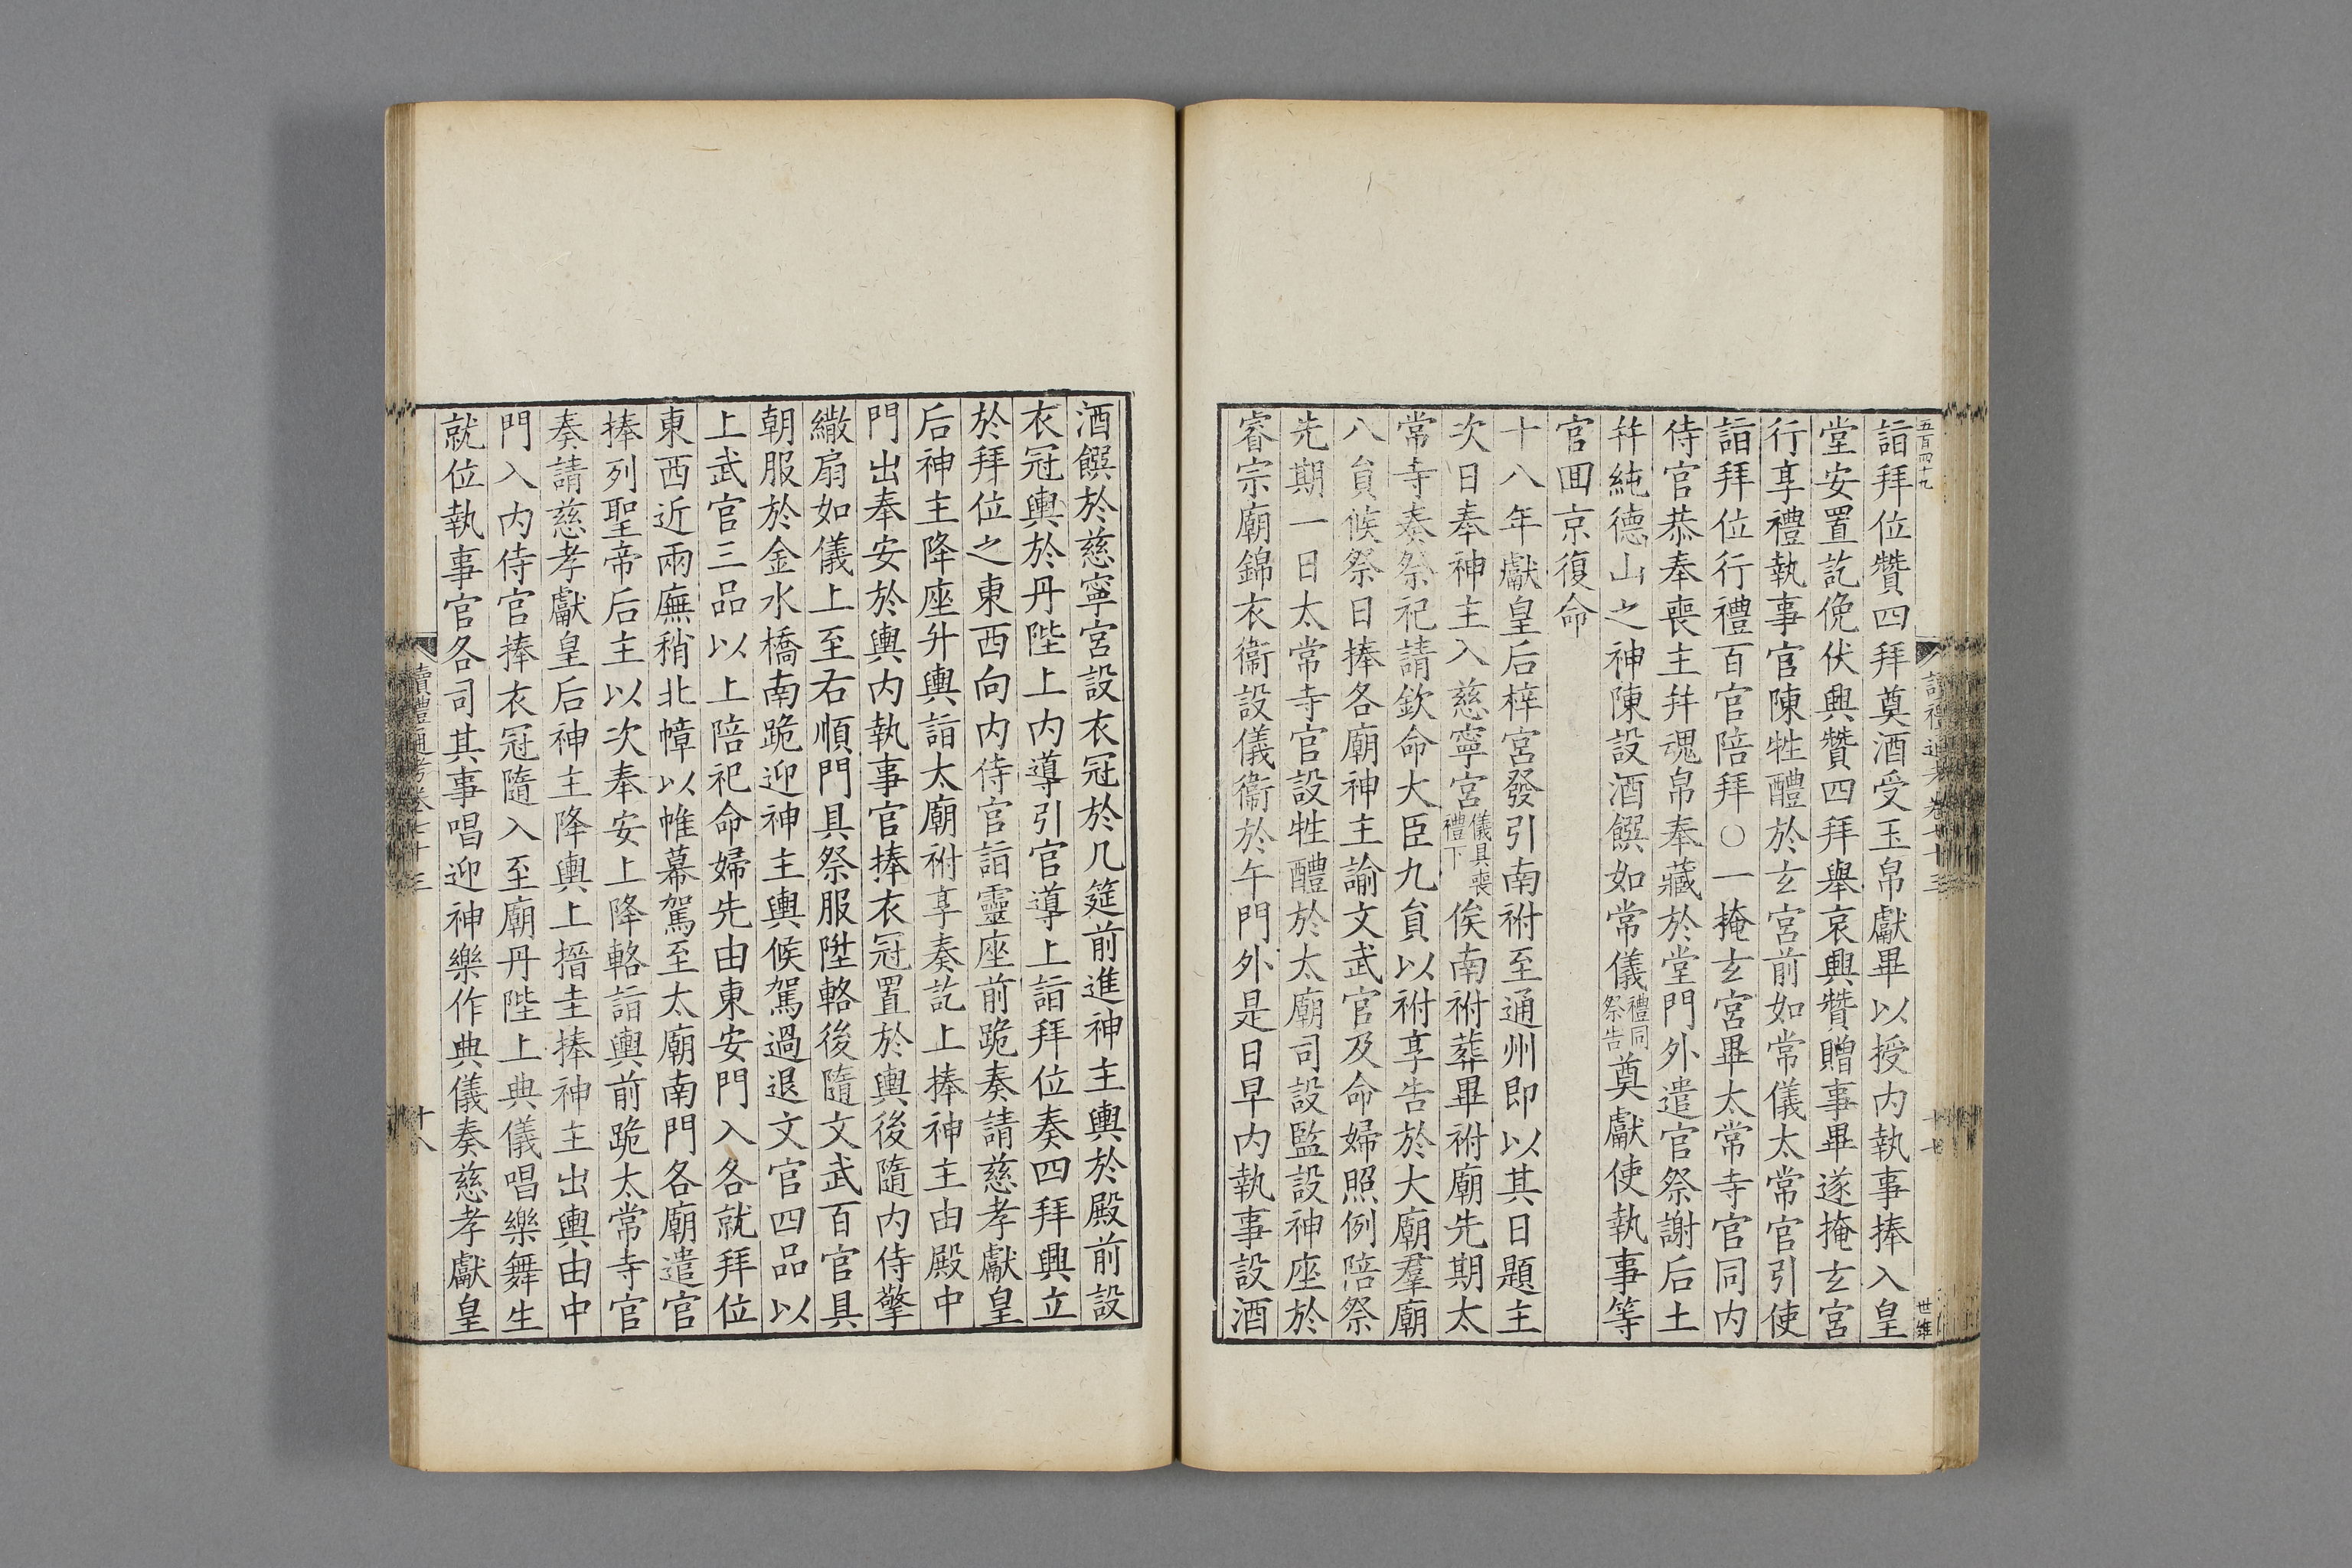 五百四十九
詣拜位贊四拜奠酒受玉帛獻畢以授内執事捧入皇
堂安置訖俛伏興贊四拜舉哀興贊贈事畢遂掩玄宮
行享禮執事官陳牲醴於玄宮前如常儀太常官引使
詣拜位行禮百官陪拜○一掩玄宮畢太常寺官同内
侍官恭奉喪主幷魂帛奉藏於堂門外遣官祭謝后土
幷純德山之神陳設酒饌如常儀禮同祭告奠獻使執事等
官囬京復命
十八年獻皇后梓宮發引南祔至通州即以其日題主
次日奉神主入慈寧宮儀具喪禮下俟南祔葬畢祔廟先期太
常寺奏祭祀請欽命大臣九員以祔享告於大廟羣廟
八員候祭日捧各廟神主諭文武官及命婦照例陪祭
先期一日太常寺官設牲醴於太廟司設監設神座於
睿宗廟錦衣衞設儀衞於午門外是日早内執事設酒
讀禮通考卷七十三
十七
世雒
酒饌於慈寧宮設衣冠於几筵前進神主輿於殿前設
衣冠輿於丹陛上内導引官導上詣拜位奏四拜興立
於拜位之東西向内侍官詣靈座前跪奏請慈孝獻皇
后神主降座升輿詣太廟祔享奏訖上捧神主由殿中
門出奉安於輿内執事官捧衣冠置於輿後隨内侍擎
繖扇如儀上至右順門具祭服陞輅後隨文武百官具
朝服於金水橋南跪迎神主輿候駕過退文官四品以
上武官三品以上陪祀命婦先由東安門入各就拜位
東西近兩廡稍北幛以帷幕駕至太廟南門各廟遣官
捧列聖帝后主以次奉安上降輅詣輿前跪太常寺官
奏請慈孝獻皇后神主降輿上搢圭捧神主出輿由中
門入内侍官捧衣冠隨入至廟丹陛上典儀唱樂舞生
就位執事官各司其事唱迎神樂作典儀奏慈孝獻皇
讀禮通考卷七十三
十八